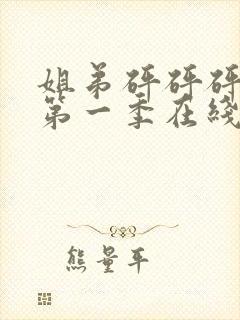 姐弟砰砰砰
第一季在线
熊量平